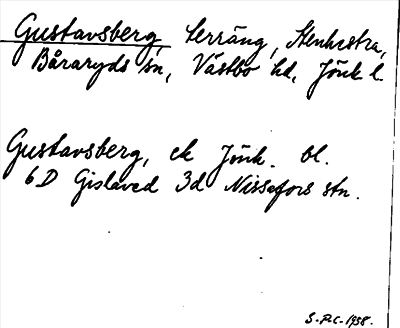 Gustavsberg, terräng, Stenhestra,
Båraryds sn, Västbo hd, Jönk l.
Gustavsberg, ek Jönk. bl.
6D Gislaved 3d Nissafors stn.
S. P.C. 1958.